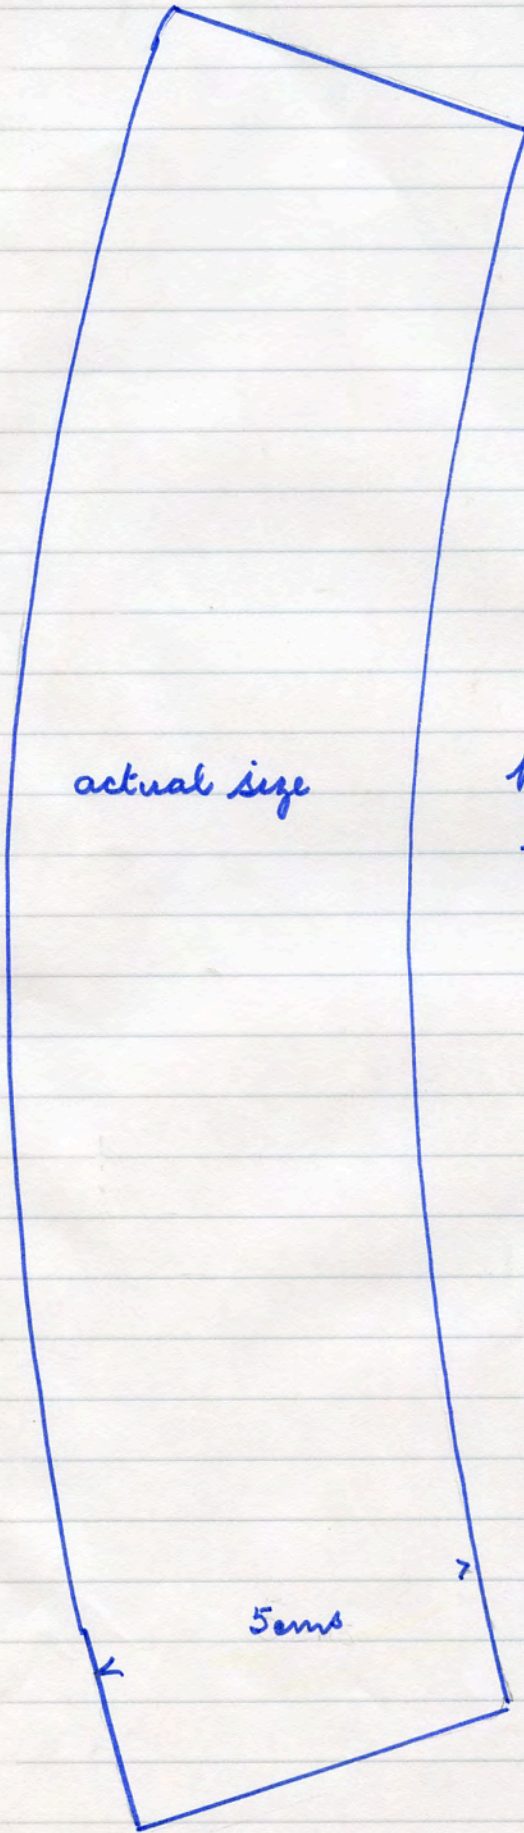 actual size
5cms